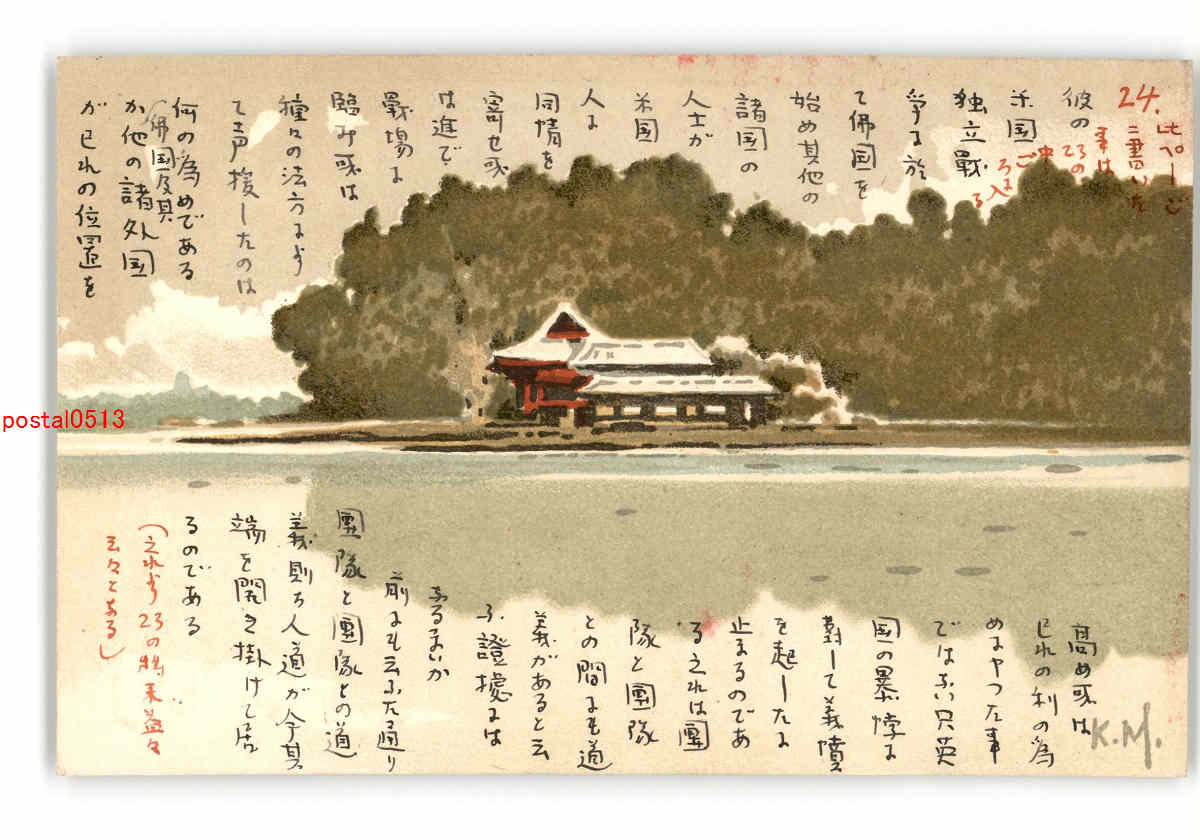 24.
此ページ
ニ書いた
事は
23の
中
ごろに入
る
彼の
米国
独立戰
争に於
て佛国を
始め其他の
諸国の
人士が
米国
人に
同情を
寄せ或
は進で
戰場に
臨み或は
種々の法方により
て声援したのは
何の為めである
佛国及其
か他の諸外国
が已れの位置を
高め或は
已れの利の為
めにやつた事
ではない只英
国の暴悖に
對して義憤
を起したに
止まるのであ
る之れは團
隊と團隊
との間にも道
義があると云
ふ證據には
あるまいか
前にも云ふた通り
團隊と團隊との道
義則ち人道が今其
端を開き掛けて居
るのである
(之れより23の將来益々
云々とある)
K.M.
postal0513